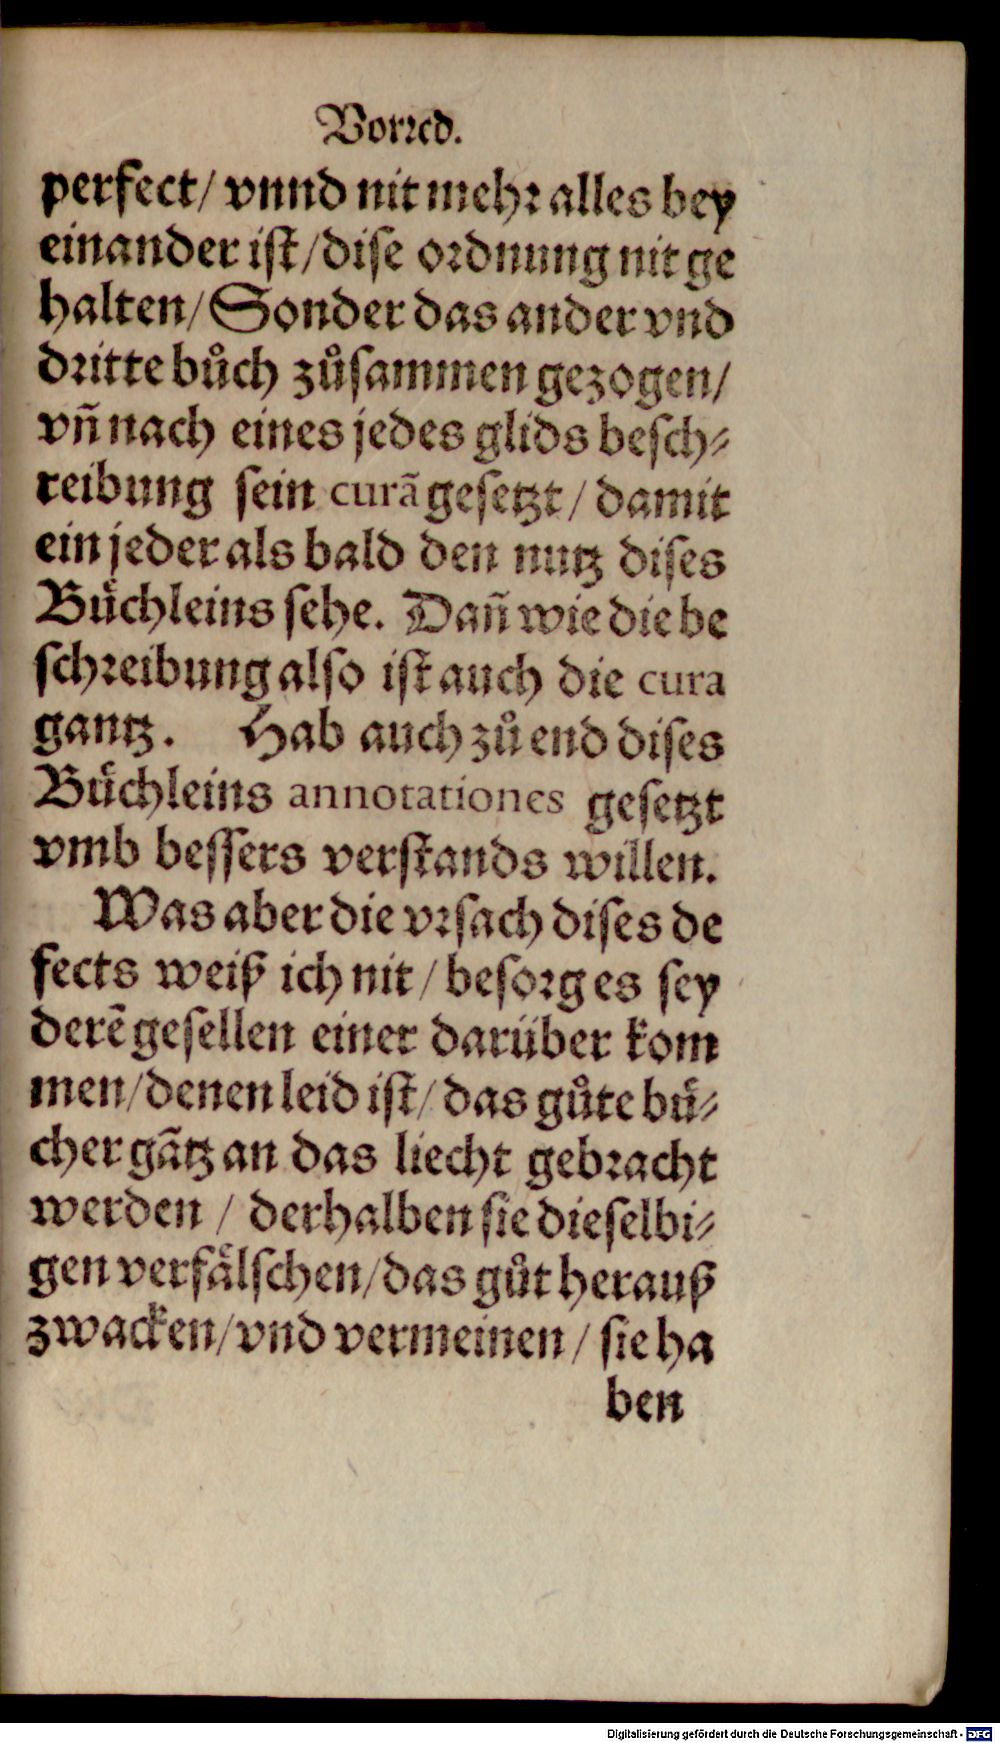 Vorred.
perfect/ vnnd nit mehr alles bey
einander ist/dise ordnung nit ge
halten/Sonder das ander vnd
dritte bůch zůsammen gezogen/
vñ nach eines jedes glids besch⸗
reibung sein curã gesetzt/ damit
ein jeder als bald den nutz dises
Bůchleins sehe. Dañ wie die be
schreibung also ist auch die cura
gantz. Hab auch zů end dises
Bůchleins annotationes gesetzt
vmb bessers verstands willen.
Was aber die vrsach dises de
fects weiß ich nit/ besorg es sey
derẽ gesellen einer darüber kom
men/denen leid ist/ das gůte bů⸗
cher gãtz an das liecht gebracht
werden / derhalben sie dieselbi⸗
gen verfålschen/das gůt herauß
zwacken/vnd vermeinen/ sie ha
ben
Digitalisierung gefördert durch die Deutsche Forschungsgemeinschaft - DFG